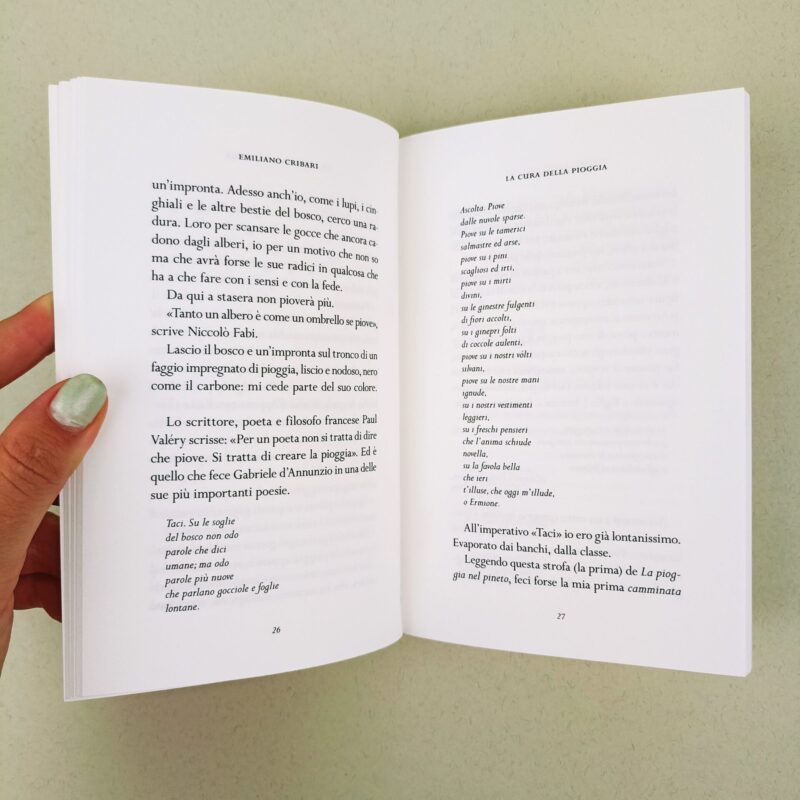 EMILIANO CRIBARI
un'impronta. Adesso anch'io, come i lupi, i cin-
ghiali e le altre bestie del bosco, cerco una ra-
dura. Loro per scansare le gocce che ancora ca-
dono dagli alberi, io per un motivo che non so
ma che avrà forse le sue radici in qualcosa che
ha a che fare con i sensi e con la fede.
Da qui a stasera non pioverà più.
«Tanto un albero è come un ombrello se piove»,
scrive Niccolò Fabi.
Lascio il bosco e un'impronta sul tronco di un
faggio impregnato di pioggia, liscio e nodoso, nero
come il carbone: mi cede parte del suo colore.
Lo scrittore, poeta e filosofo francese Paul
Valéry scrisse: «Per un poeta non si tratta di dire
che piove. Si tratta di creare la pioggia». Ed è
quello che fece Gabriele d'Annunzio in una delle
sue più importanti poesie.
Taci. Su le soglie
del bosco non odo
parole che dici
umane; ma odo
parole più nuove
che parlano gocciole e foglie
lontane.
26
LA CURA DELLA PIOGGIA
Ascolta. Piove
dalle nuvole sparse.
Piove su le tamerici
salmastre ed arse,
piove su i pini
scagliosi ed irti,
piove su i mirti
divini,
su le ginestre fulgenti
di fiori accolti,
su i ginepri folti
di coccole aulenti,
piove su i nostri vólti
silvani,
piove su le nostre mani
ignude,
su i nostri vestimenti
leggieri,
su i freschi pensieri
che l'anima schiude
novella,
su la favola bella
che ieri
t'illuse, che oggi m'illude,
o Ermione.
All'imperativo «Taci» io ero già lontanissimo.
Evaporato dai banchi, dalla classe.
Leggendo questa strofa (la prima) de La piog-
gia nel pineto, feci forse la mia prima camminata
27